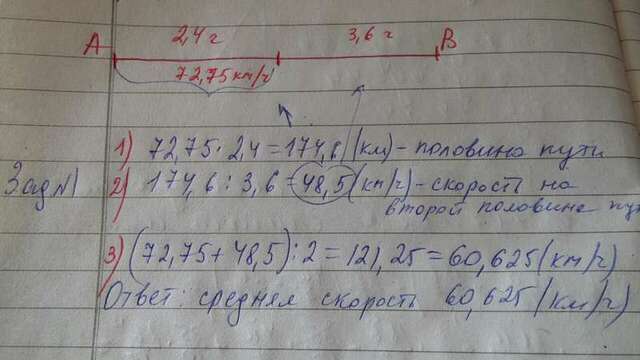 2,4 г 3,6 г
A B
72,75 км/ч
1) 72,75 · 2,4 = 174,6 (км) - половина пути
Зад N1
2) 174,6 : 3,6 = 48,5 (км/ч) - скорость на
второй половине пут
3) (72,75 + 48,5) : 2 = 121,25 = 60,625 (км/ч)
Ответ: средняя скорость 60,625 (км/ч)